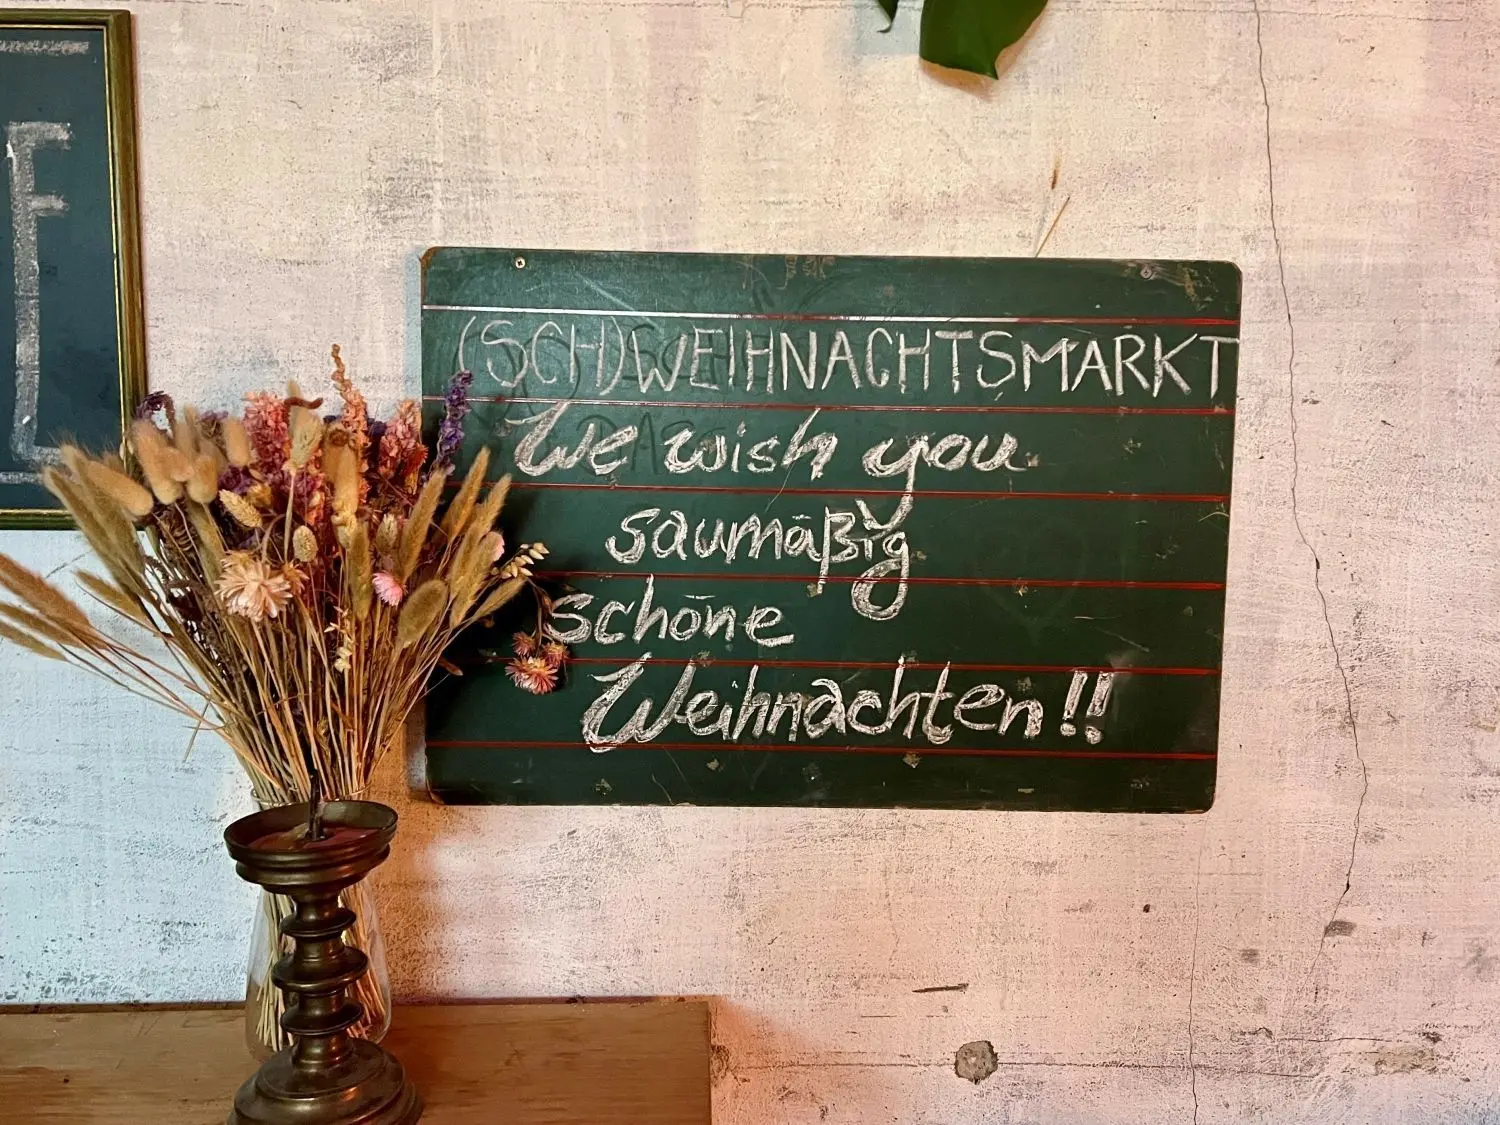 E
(SCH)WEIHNACHTSMARKT
We wish you
saumäßig
schöne
Weihnachten!!